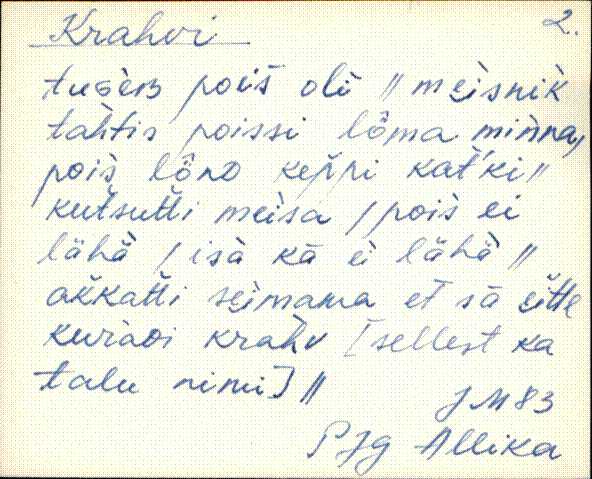 Krahvi 2.
tugev̀ pois̀ oli̬ // mèisnik̀
tahtis poissi lôma minna,
pois̀ lônᴅ kep̌pi kat̆'ki //
kutsut̆ti mèisa / pois̀ ei
lähä̀ / isà kà ei lähä̀ //
ak̆kat̆ti sèimama et sà ei̬tte
kuraᴅi krahv [sellest ka
talu nimi] //
JM83
PJg Allika